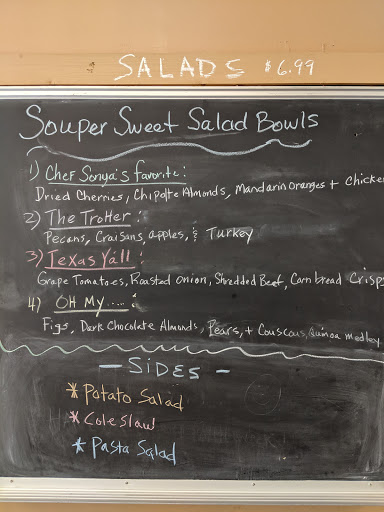 SALADS $6.99
Souper Sweet Salad Bowls
1) Chef Sonya's favorite:
Dried Cherries, Chipotle Almonds, Mandarin Oranges + Chicke
2) The Trotter:
Pecans, Craisans, apples, & Turkey
3) Texas Y'all:
Grape Tomatoes, Roasted Onion, Shredded Beef, Cornbread Crisps
4) OH My.....:
Figs, Dark Chocolate Almonds, Pears, + Couscous, Quinoa medley
— SiDES —
* Potato Salad
* Cole Slaw
* Pasta Salad